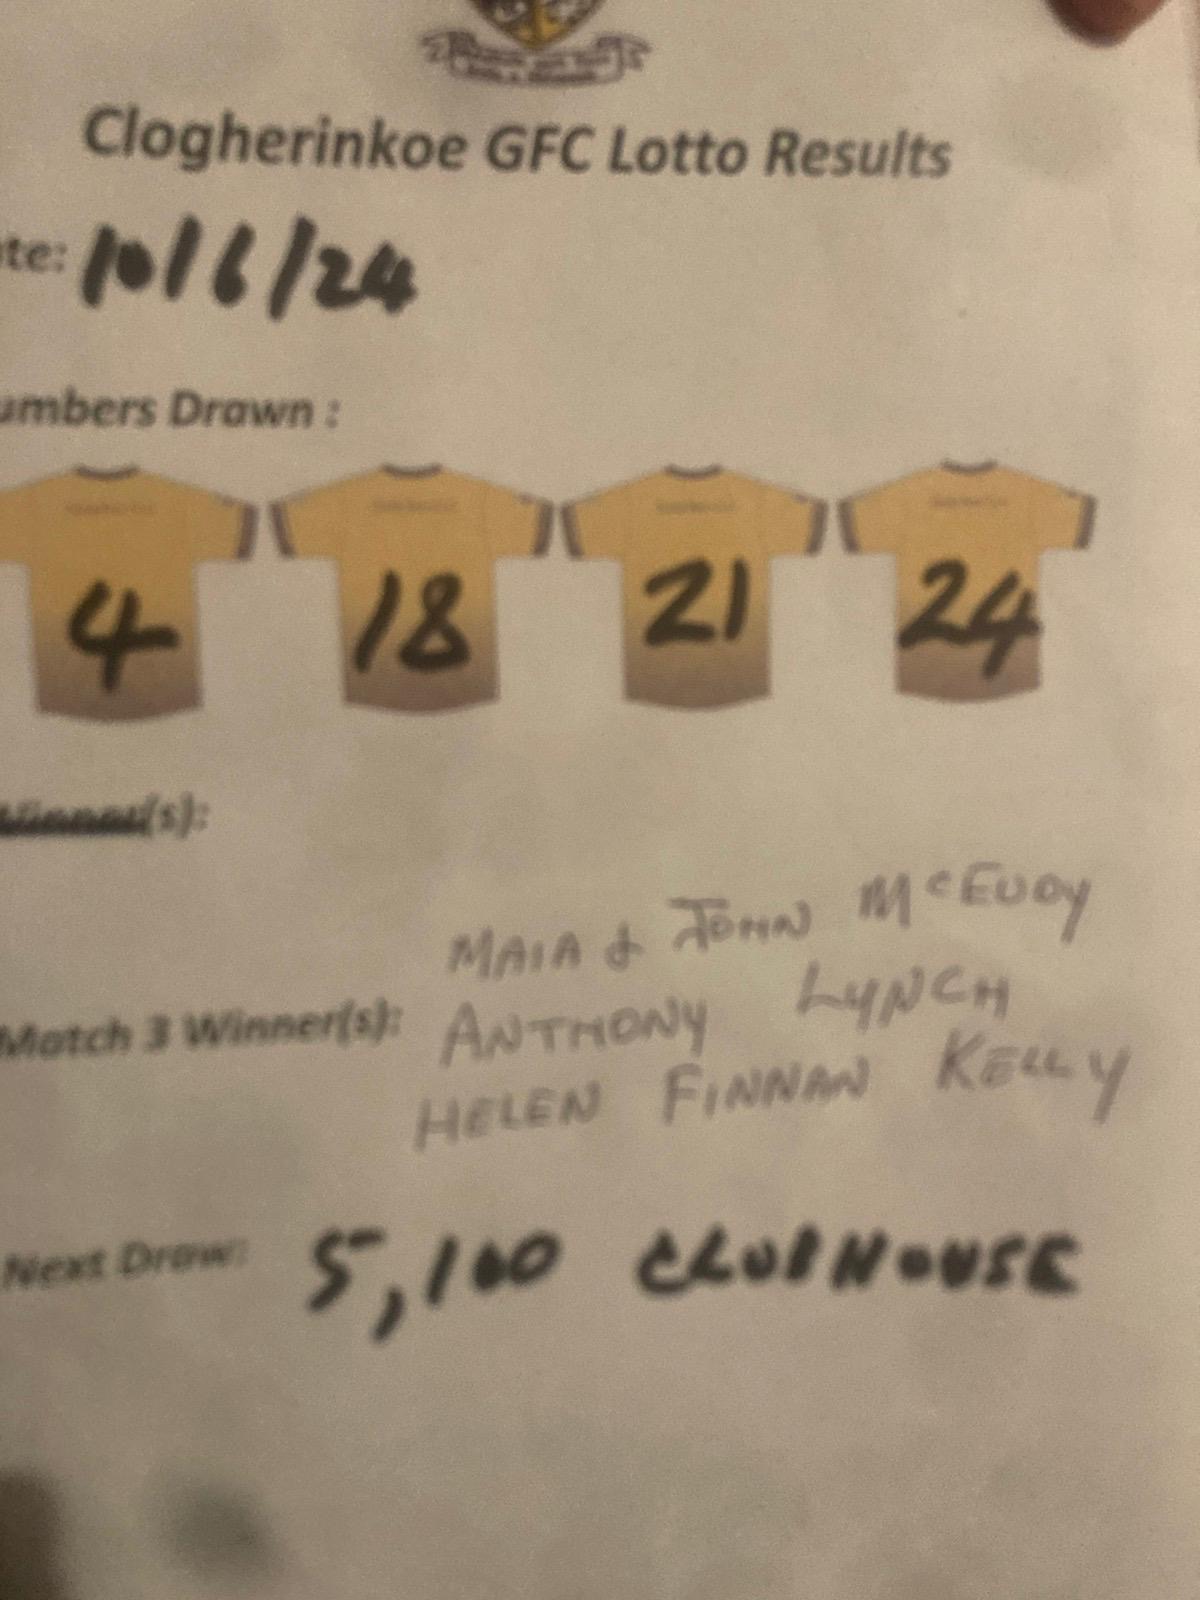 Clogherinkoe GFC Lotto Results
te: 10/6/24
umbers Drawn :
4 18 21 24
(s):
MAIA & JOHN McEVOY
Match 3 Winner(s): ANTHONY LYNCH
HELEN FINNAN KELLY
Next Draw: 5,100 CLUBHOUSE